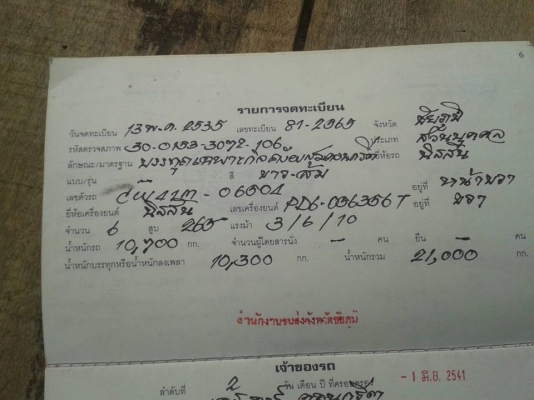 6
รายการจดทะเบียน
วันจดทะเบียน 13 พ.ค. 2535 เลขทะเบียน 81-2965 จังหวัด ชัยภูมิ
รหัสตรวจสภาพ ประเภท ส่วนบุคคล
ลักษณะ/มาตรฐาน บรรทุกเฉพาะกิจ ยี่ห้อรถ นิสสัน
แบบ/รุ่น สี ขาว-ส้ม
เลขตัวรถ - 06604 อยู่ที่ หน้าขวา
ยี่ห้อเครื่องยนต์ นิสสัน เลขเครื่องยนต์ PD6-036356T อยู่ที่ ขวา
จำนวน 6 สูบ 265 แรงม้า 3/6/10
น้ำหนักรถ 10,700 กก. จำนวนผู้โดยสารนั่ง - คน ยืน - คน
น้ำหนักบรรทุกหรือน้ำหนักลงเพลา 10,300 กก. น้ำหนักรวม 21,000 กก.
สำนักงานขนส่งจังหวัดชัยภูมิ
เจ้าของรถ
ลำดับที่ 2 วัน เดือน ปี ที่ครอบครอง - 1 มิ.ย. 2541